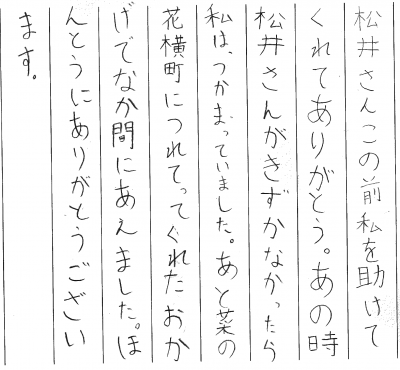 松井さんこの前私を助けて
くれてありがとう。あの時
松井さんがきずかなかったら
私は、つかまっていました。あと菜の
花横町につれてってくれたおか
げでなか間にあえました。ほ
んとうにありがとうござい
ます。